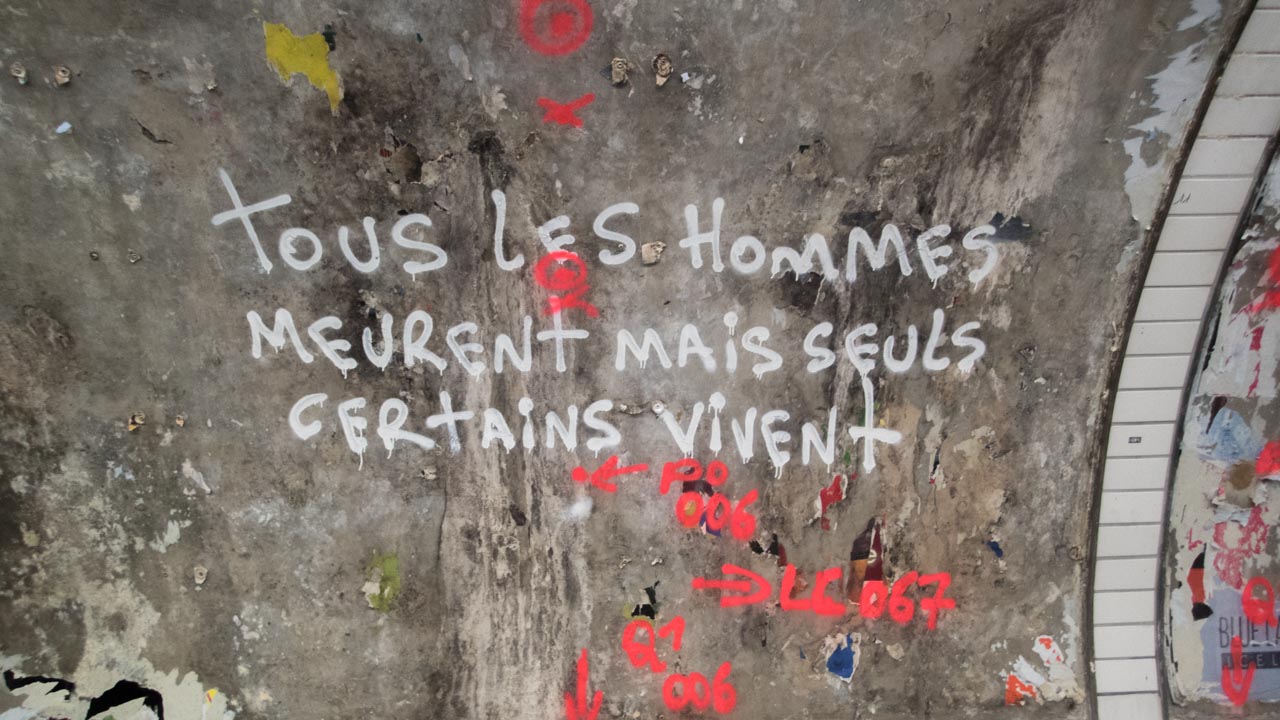 TOUS LES HOMMES
MEURENT MAIS SEULS
CERTAINS VIVENT
PO
006
LC 067
Q1
006